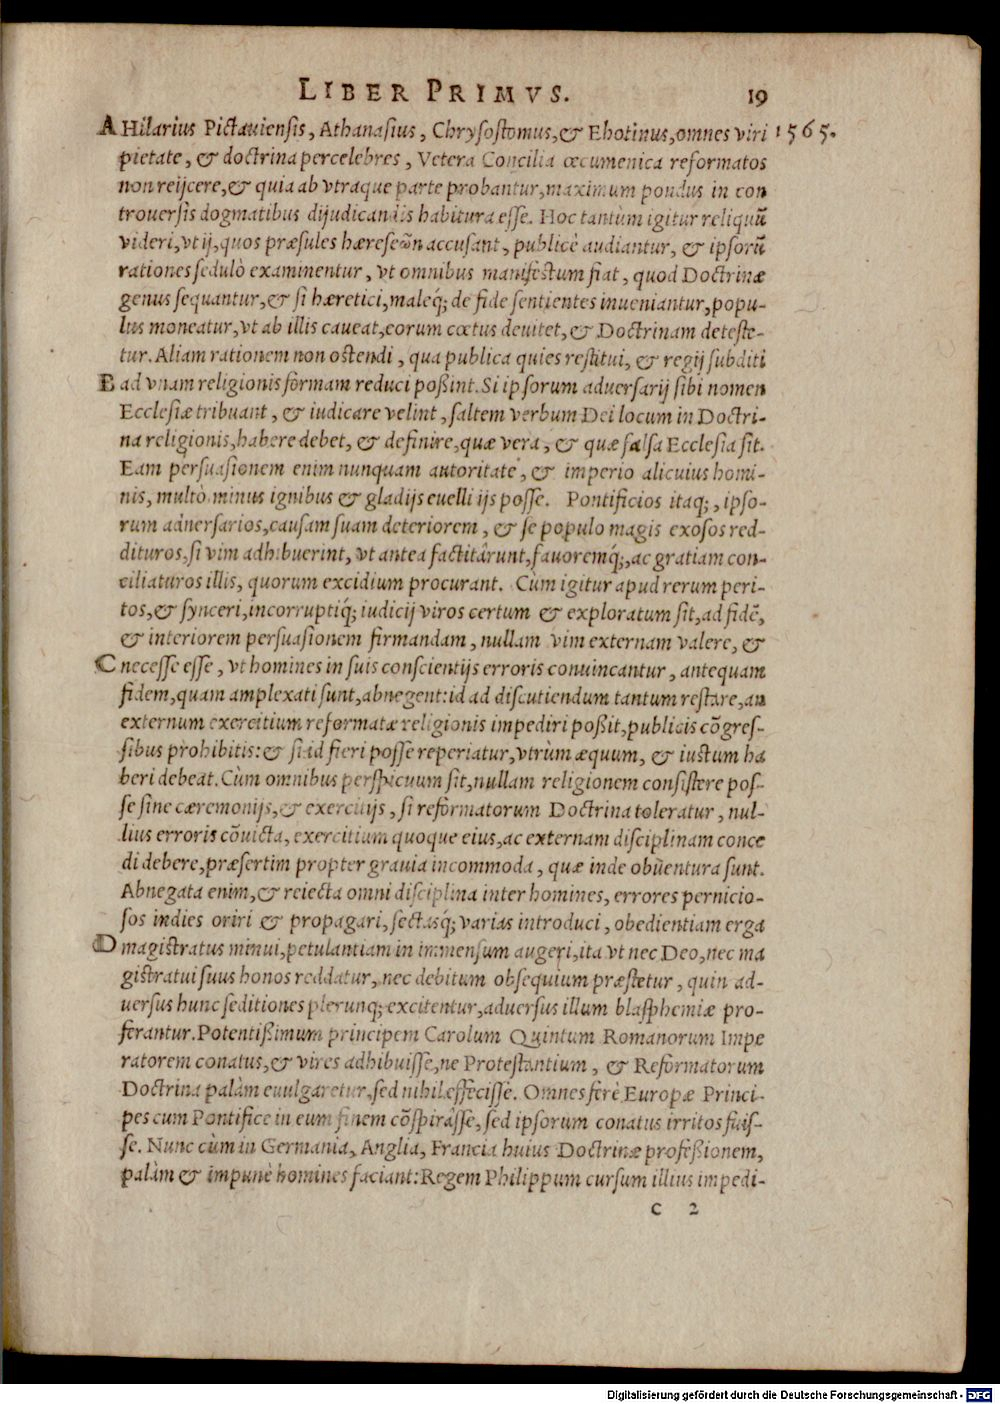 LIBER PRIMVS. 19
A Hilarius Pictauiensis, Athanasius, Chrysostomus, & Ehotinus, omnes viri 1565.
pietate, & doctrina percelebres, Vetera Concilia œcumenica reformatos
non reijcere, & quia ab vtraque parte probantur, maximum pondus in con
trouersis dogmatibus dijudicandis habitura esse. Hoc tantùm igitur reliquũ
videri, vt ij, quos præsules hæreseωn accusant, publicè audiantur, & ipsorũ
rationes sedulò examinentur, vt omnibus manifestum fiat, quod Doctrinæ
genus sequantur, & si hæretici, maleq́; de fide sentientes inueniantur, popu-
lus moneatur, vt ab illis caueat, eorum cœtus deuitet, & Doctrinam deteste-
tur. Aliam rationem non ostendi, qua publica quies restitui, & regij subditi
B ad vnam religionis formam reduci poßint. Si ipsorum aduersarij sibi nomen
Ecclesiæ tribuant, & iudicare velint, saltem verbum Dei locum in Doctri-
na religionis, habere debet, & definire, quæ vera, & quæ falsa Ecclesia sit.
Eam persuasionem enim nunquam autoritate, & imperio alicuius homi-
nis, multò minus ignibus & gladijs euelli ijs posse. Pontificios itaq;, ipso-
rum aduersarios, causam suam deteriorem, & se populo magis exosos red-
dituros, si vim adhibuerint, vt antea factitârunt, fauoremq́;, ac gratiam con-
ciliaturos illis, quorum excidium procurant. Cùm igitur apud rerum peri-
tos, & synceri, incorruptiq́; iudicij viros certum & exploratum sit, ad fidẽ,
& interiorem persuasionem firmandam, nullam vim externam valere, &
C necesse esse, vt homines in suis conscientijs erroris conuincantur, antequam
fidem, quam amplexati sunt, abnegent: id ad discutiendum tantum restare, an
externum exercitium reformatæ religionis impediri poßit, publicis cõgres-
sibus prohibitis: & si id fieri posse reperiatur, vtrùm æquum, & iustum ha
beri debeat. Cùm omnibus perspicuum sit, nullam religionem consistere pos-
se sine cæremonijs, & exercitijs, si reformatorum Doctrina toleratur, nul-
lius erroris cõuicta, exercitium quoque eius, ac externam disciplinam conce
di debere, præsertim propter grauia incommoda, quæ inde obũentura sunt.
Abnegata enim, & reiecta omni disciplina inter homines, errores pernicio-
sos indies oriri & propagari, sectasq́; varias introduci, obedientiam erga
D magistratus minui, petulantiam in immensum augeri, ita vt nec Deo, nec ma
gistratui suus honos reddatur, nec debitum obsequium præstetur, quin ad-
uersus hunc seditiones plerunq; excitentur, aduersus illum blasphemiæ pro-
ferantur. Potentißimum principem Carolum Quintum Romanorum Impe
ratorem conatus, & vires adhibuisse, ne Protestantium, & Reformatorum
Doctrina palàm euulgaretur, sed nihil effecisse. Omnes ferè Europæ Princi-
pes cum Pontifice in eum finem cõspirâsse, sed ipsorum conatus irritos fuis-
se. Nunc cùm in Germania, Anglia, Francia huius Doctrinæ profeßionem,
palàm & impunè homines faciant: Regem Philippum cursum illius impedi-
C 2
Digitalisierung gefördert durch die Deutsche Forschungsgemeinschaft - DFG